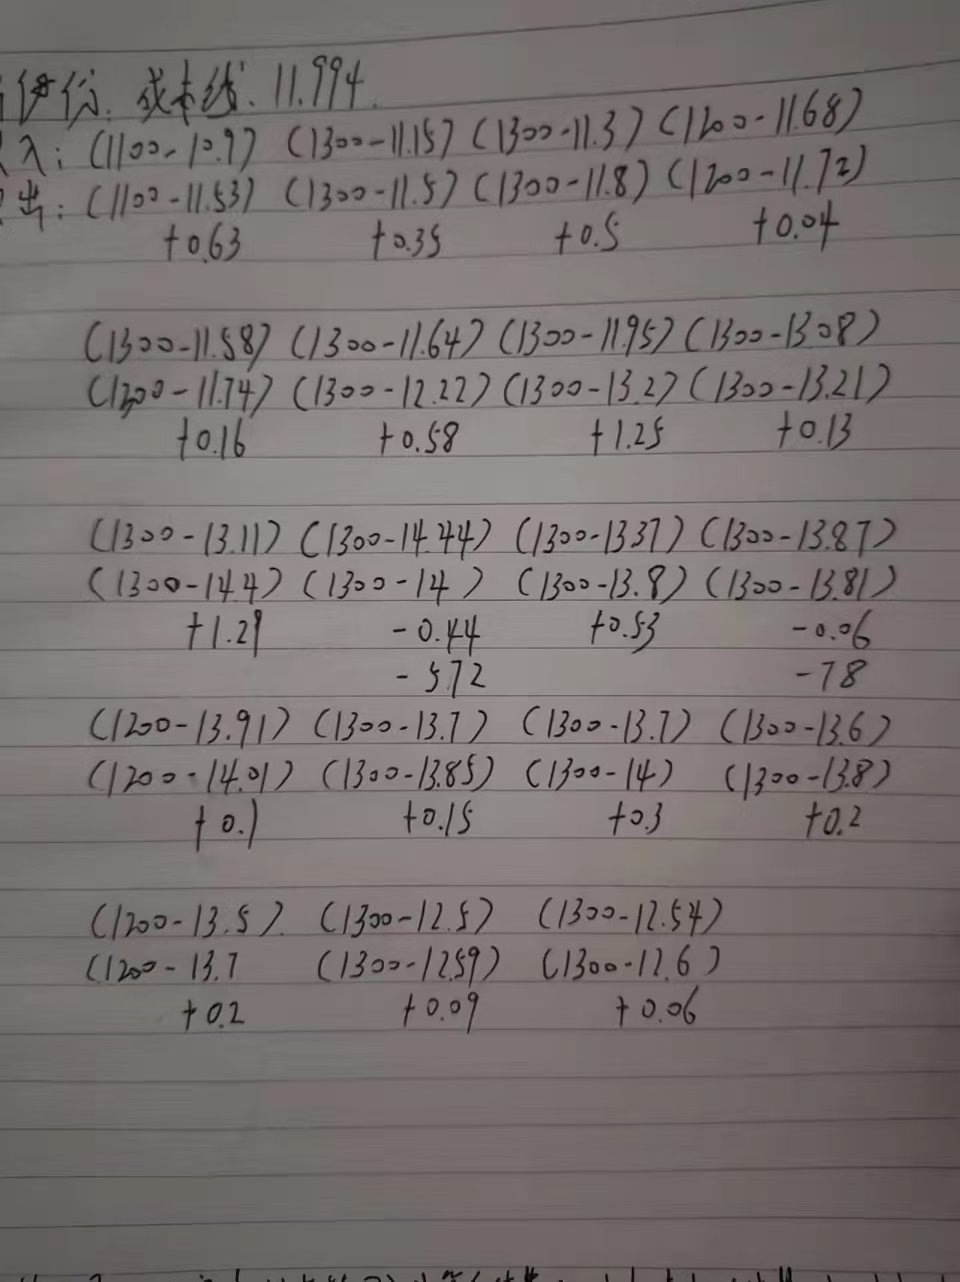 份. 成本线. 11.994.
入: (1100-10.9) (1300-11.15) (1300-11.3) (1200-11.68)
出: (1100-11.53) (1300-11.5) (1300-11.8) (1200-11.72)
+0.63 +0.35 +0.5 +0.04
(1300-11.58) (1300-11.64) (1300-11.95) (1300-13.08)
(1300-11.74) (1300-12.22) (1300-13.2) (1300-13.21)
+0.16 +0.58 +1.25 +0.13
(1300-13.11) (1300-14.44) (1300-13.37) (1300-13.87)
(1300-14.4) (1300-14) (1300-13.8) (1300-13.81)
+1.29 -0.44 +0.53 -0.06
-572 -78
(1200-13.91) (1300-13.7) (1300-13.7) (1300-13.6)
(1200-14.01) (1300-13.85) (1300-14) (1300-13.8)
+0.1 +0.15 +0.3 +0.2
(1200-13.5). (1300-12.5) (1300-12.54)
(1200-13.7 (1300-12.59) (1300-12.6)
+0.2 +0.09 +0.06